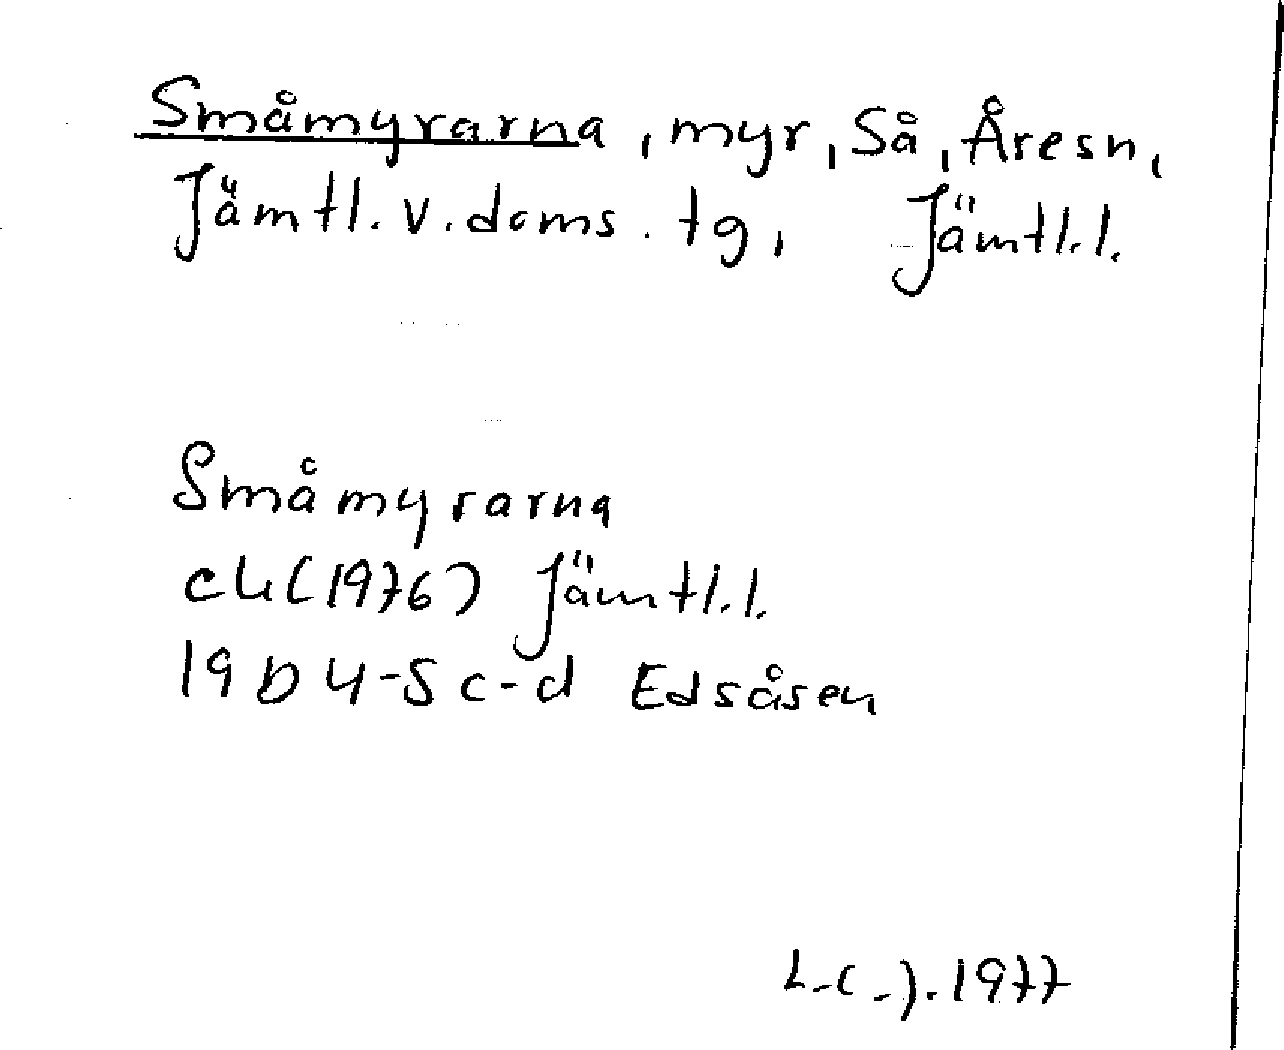 Småmyrarna, myr, Så, Åresn,
Jämtl. v. doms. tg, Jämtl.l.
Småmyrarna
ek (1976) Jämtl.l.
19D 4-5 c-d Edsåsen
L-(-). 1977